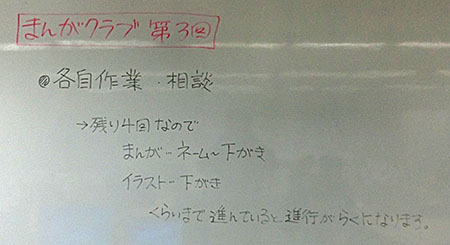 まんがクラブ 第3回
◎各自作業・相談
→残り4回なので
まんが…ネーム~下がき
イラスト…下がき
くらいまで進んでいると進行がらくになります。